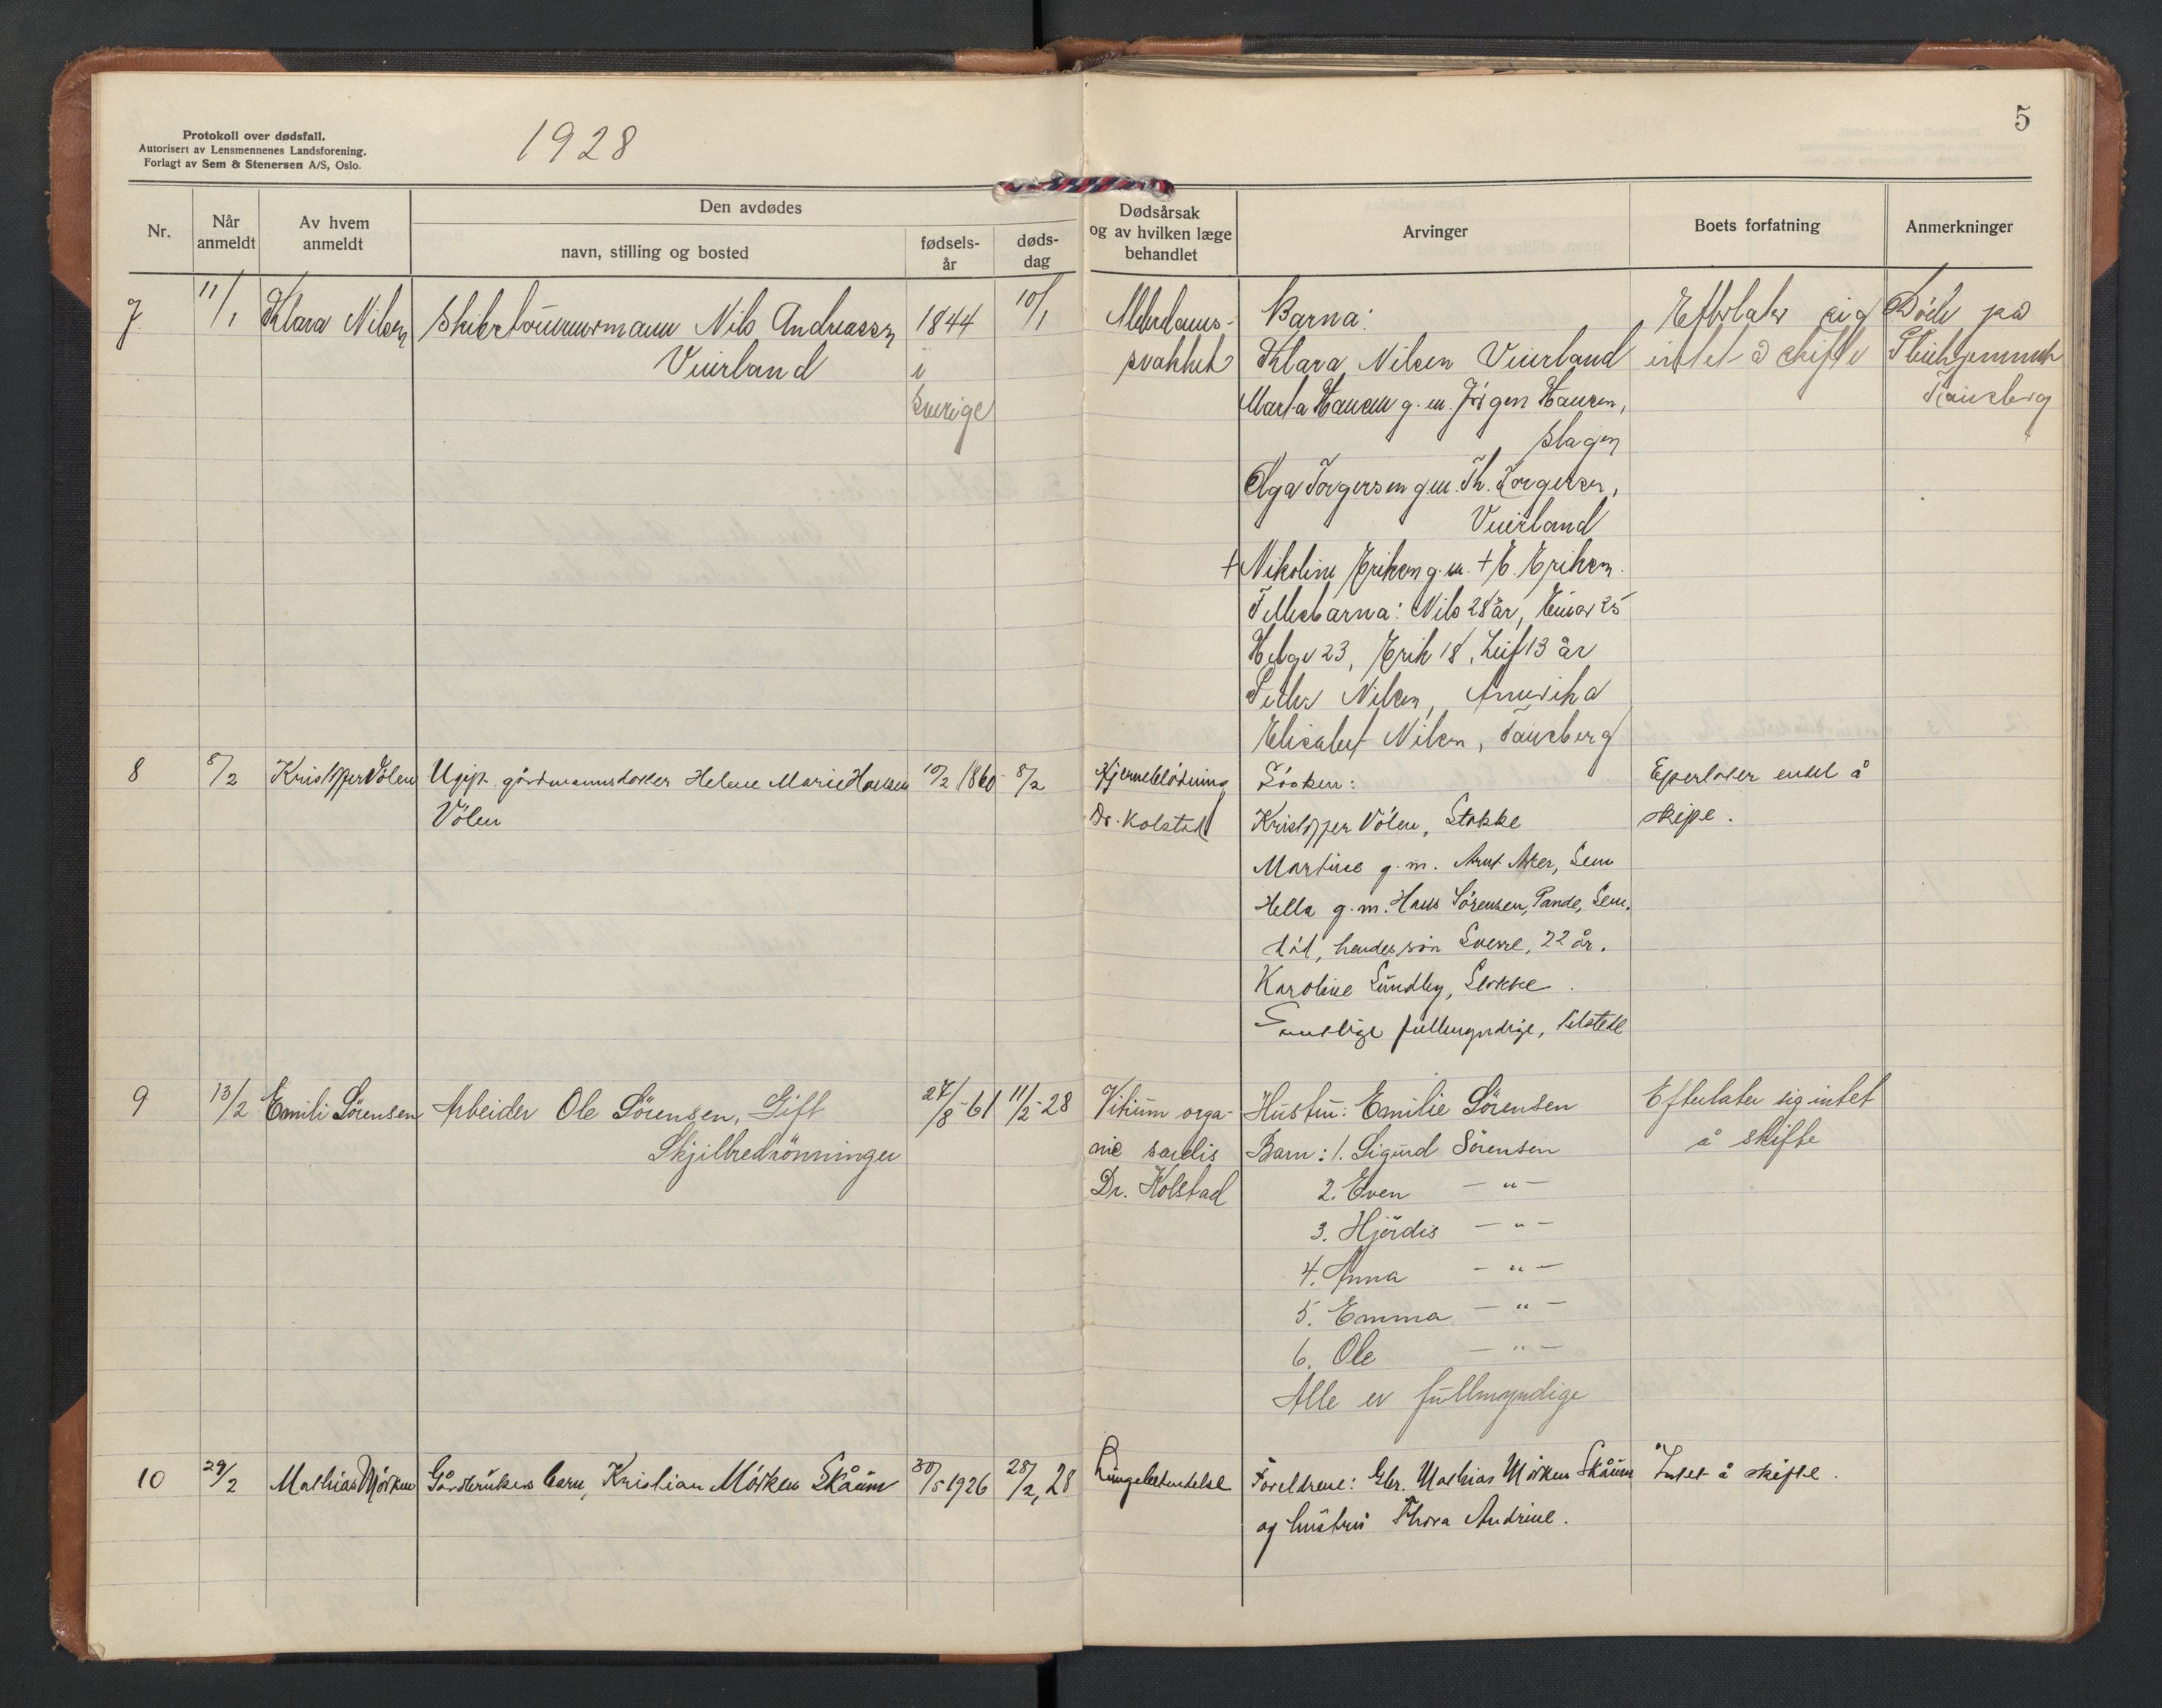 Protokoll over dødsfall.
Autorisert av Lensmennenes Landsforening.
Forlagt av Sem & Stenersen A/S, Oslo.
1928
5
Nr.
Når anmeldt
Av hvem anmeldt
Den avdødes
navn, stilling og bosted
fødsels-år
døds-dag
Dødsårsak og av hvilken læge behandlet
Arvinger
Boets forfatning
Anmerkninger
7
11/1
Klara Nilsen
Skibstømmermann Nils Andreassen
Veierland
1844
i
Sverige
10/1
Alderdoms-
svakhet
Barna:
Klara Nilsen Veierland
Marta Hansen g. m. Jörgen Hansen,
Slagen
Olga Torgersen g m. Th. Torgersen,
Veierland
+ Nikoline Eriksen g. m. + E. Eriksen.
Fellesbarna: Nils 28 år, Einar 25
Helge 23, Erik 18, Leif 13 år
Peder Nilsen, Amerika
Elisabet Nilsen, Tønsberg
Efterlater sig
intet å skifte
Döde på
Pleiehjemmet
Tønsberg
8
8/2
Kristoffer Völen
Ugift gårdmannsdatter Helene Marie Hansen
Völen
10/2 1860
8/2
Hjerneblödning
Dr. Kolstad
Sösken:
Kristoffer Völen, Stokke
Martine g. m. Arnt Aker, Sem
Hella g. m. Hans Sörensen, Pande, Sem.
död, hendes sön Sverre, 22 år.
Karoline Sundby, Stokke.
Samtlige fullmyndige, tilstede
Efterlater endel å
skifte.
9
13/2
Emili Sörensen
Arbeider Ole Sörensen, Gift
Skjilbredrönningen
27/8-61
11/2-28
Vitium orga-
nic cordis
Dr. Kolstad
Hustru: Emilie Sörensen
Barn: 1. Sigurd Sörensen
2. Even — " —
3. Hjördis — " —
4. Anna — " —
5. Emma — " —
6. Ole — " —
Alle er fullmyndige
Efterlater sig intet
å skifte
10
29/2
Mathias Mörken
Gårdbrukers barn, Kristian Mörken Skåum
30/5 1926
28/2, 28
Lungebetendelse
Foreldrene: Gbr. Mathias Mörken Skåum
og hustru Thora Andrine.
Intet å skifte.